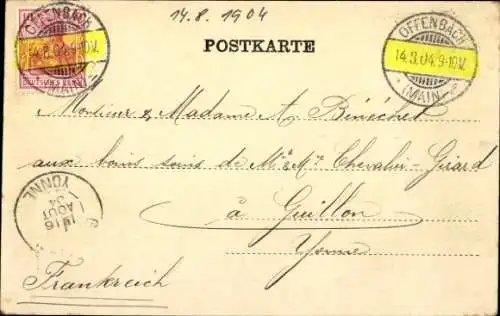 14.8.1904
OFFENBACH
14.8.04.9-10V.
(MAIN)
DEUTSCHES REICH
POSTKARTE
OFFENBACH
14.8.04.9-10V.
(MAIN)
Monsieur & Madame A. Bénéchet
aux bons soins de Mr & Me Chevalier-Girard
à Guillon
Yonne
YONNE
16
AOUT
Frankreich